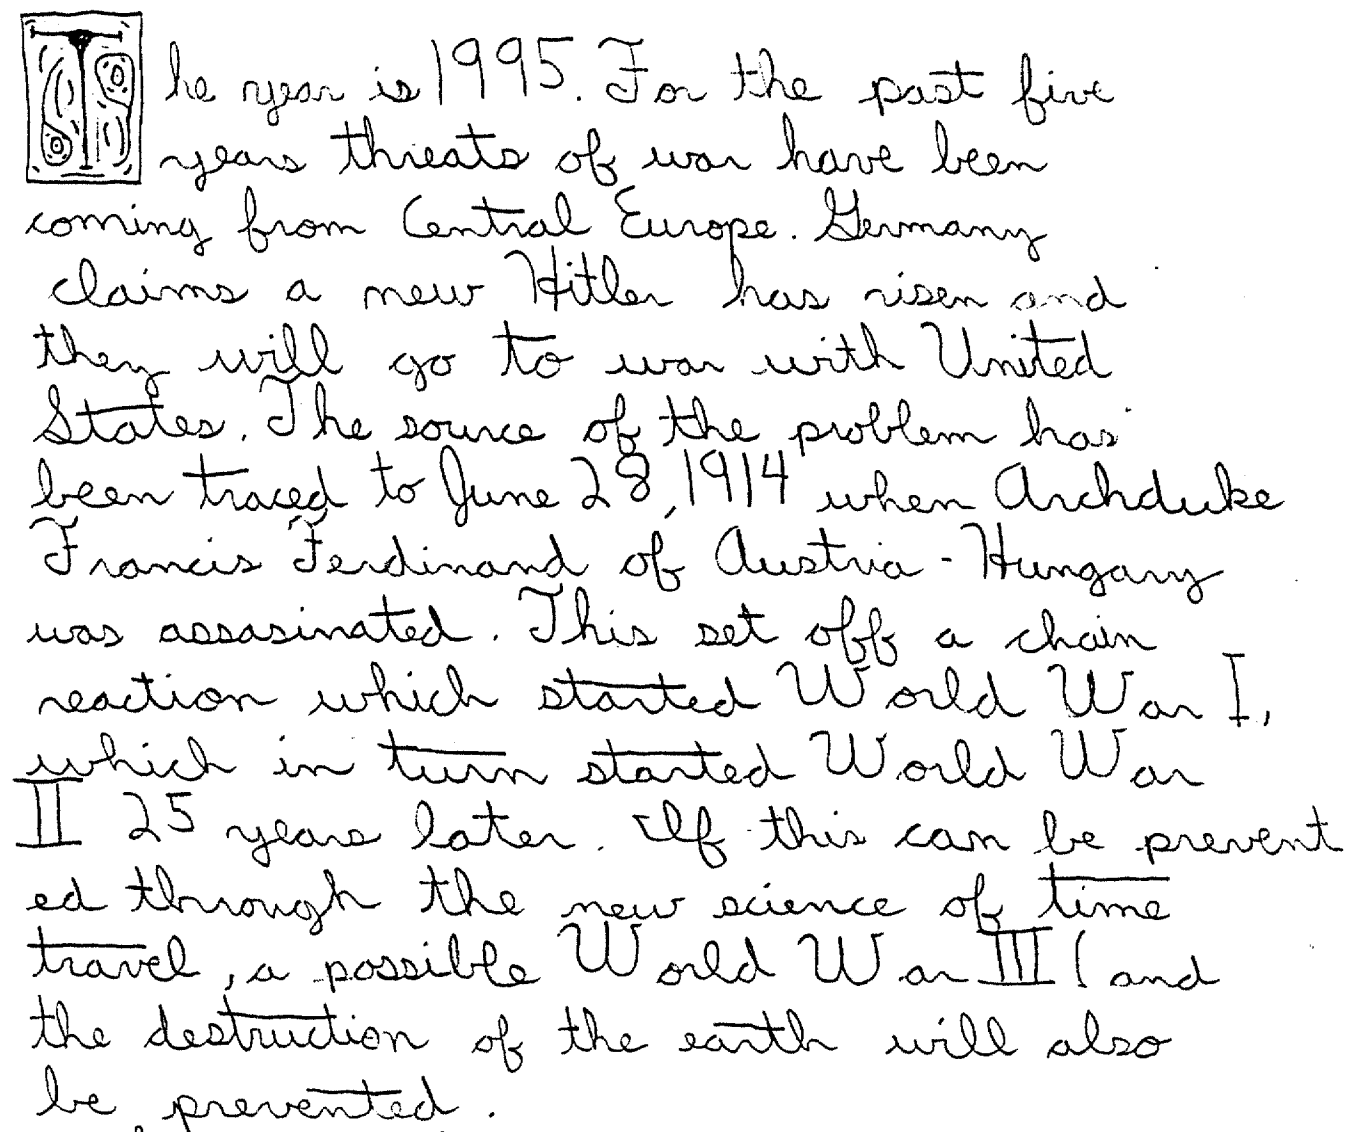 The year is 1995. For the past five
years threats of war have been
coming from Central Europe. Germany
claims a new Hitler has risen and
they will go to war with United
States. The source of the problem has
been traced to June 28, 1914 when Archduke
Francis Ferdinand of Austria-Hungary
was assasinated. This set off a chain
reaction which started World War I,
which in turn started World War
II 25 years later. If this can be prevent
ed through the new science of time
travel, a possible World War III (and
the destruction of the earth will also
be prevented.